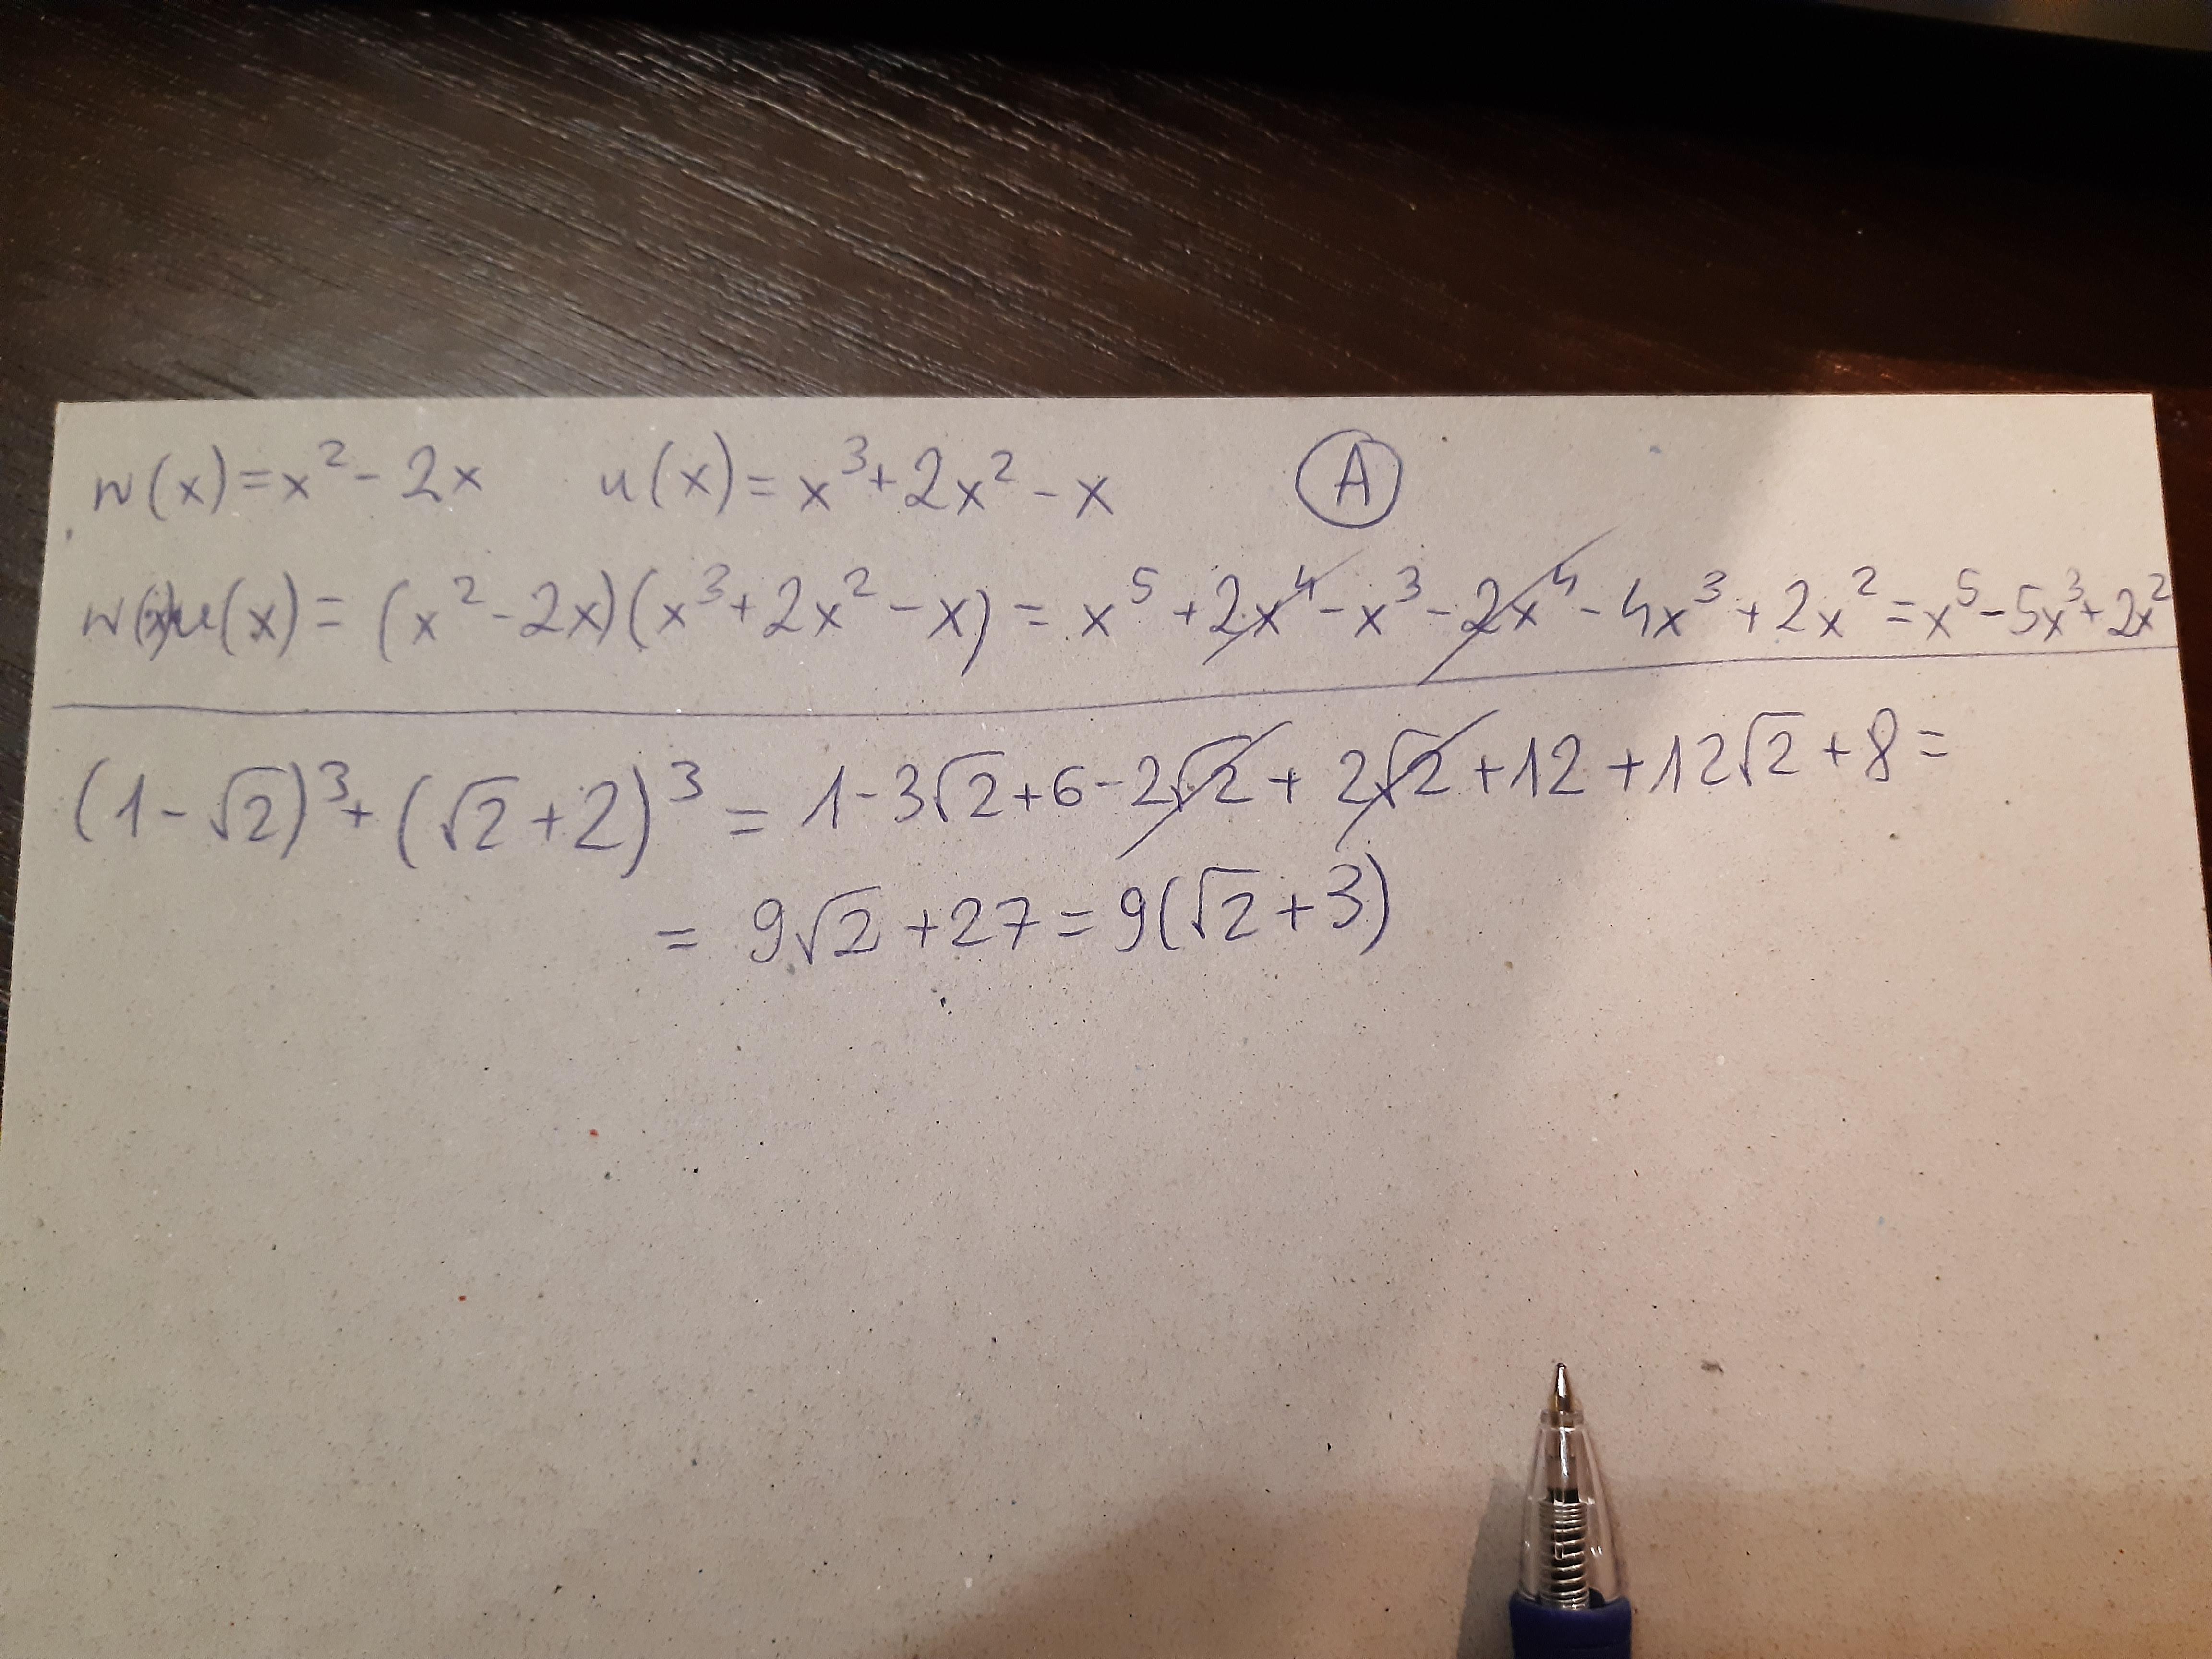 w(x)=x²-2x u(x)=x³+2x²-x A
w(x)u(x)=(x²-2x)(x³+2x²-x)=x⁵+2x⁴-x³-2x⁴-4x³+2x²=x⁵-5x³+2x²
(1-√2)³+(√2+2)³=1-3√2+6-2√2+2√2+12+12√2+8=
=9√2+27=9(√2+3)